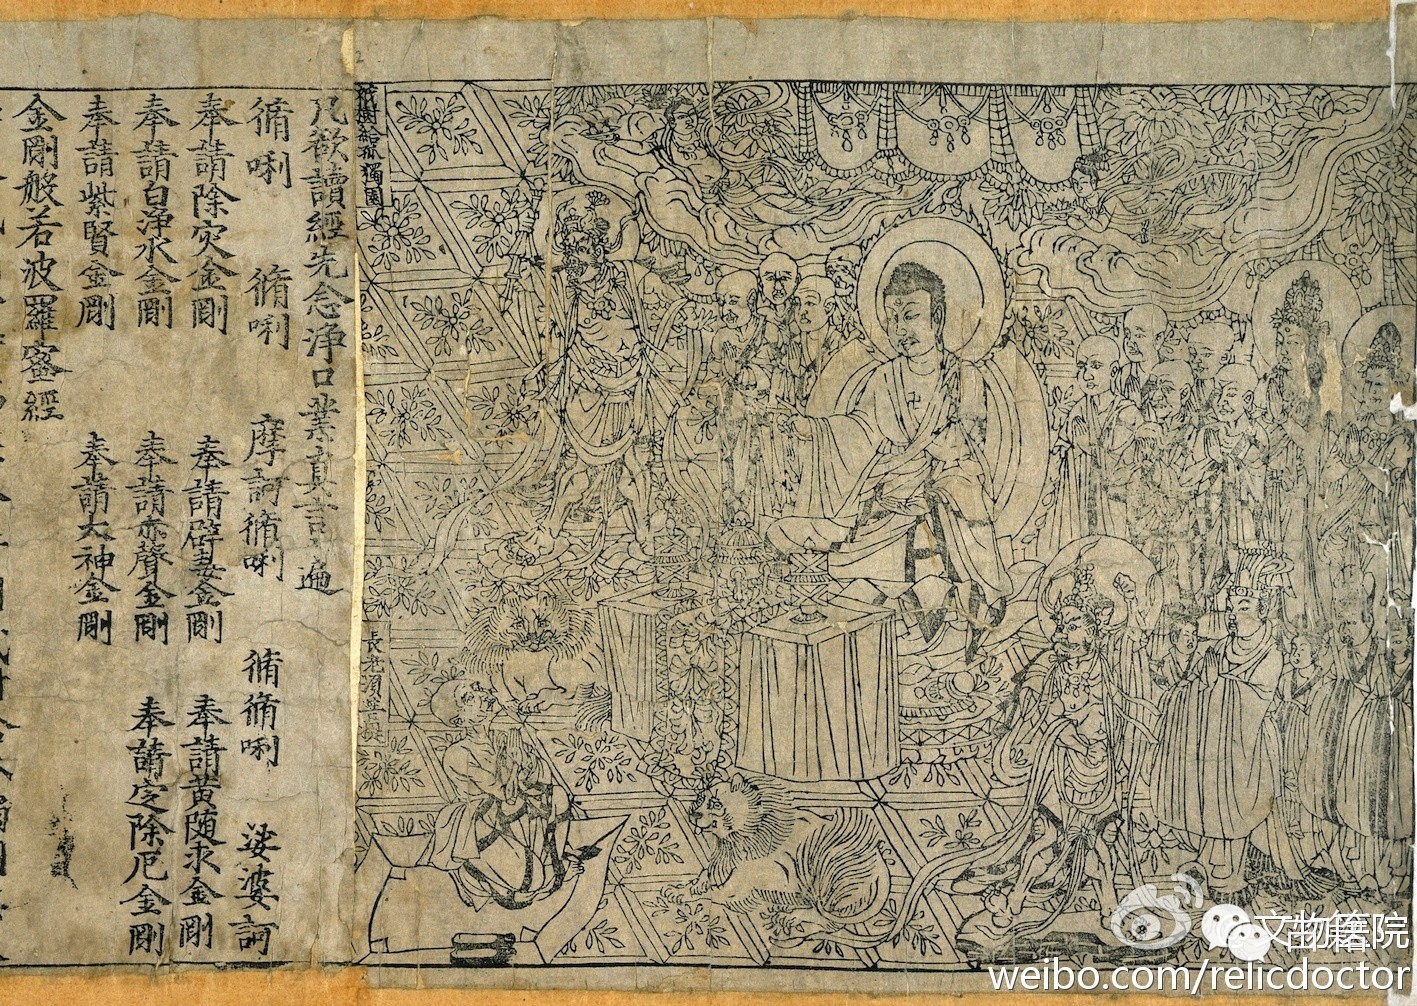 祇樹給孤獨園
長老須菩提
凡欲讀經先念淨口業真言一遍
脩唎 脩唎 摩訶脩唎 脩脩唎 娑婆訶
奉請除灾金剛 奉請辟毒金剛 奉請黄随求金剛
奉請白淨水金剛 奉請赤聲金剛 奉請定除厄金剛
奉請紫賢金剛 奉請大神金剛
金剛般若波羅蜜經
weibo.com/relicdoctor